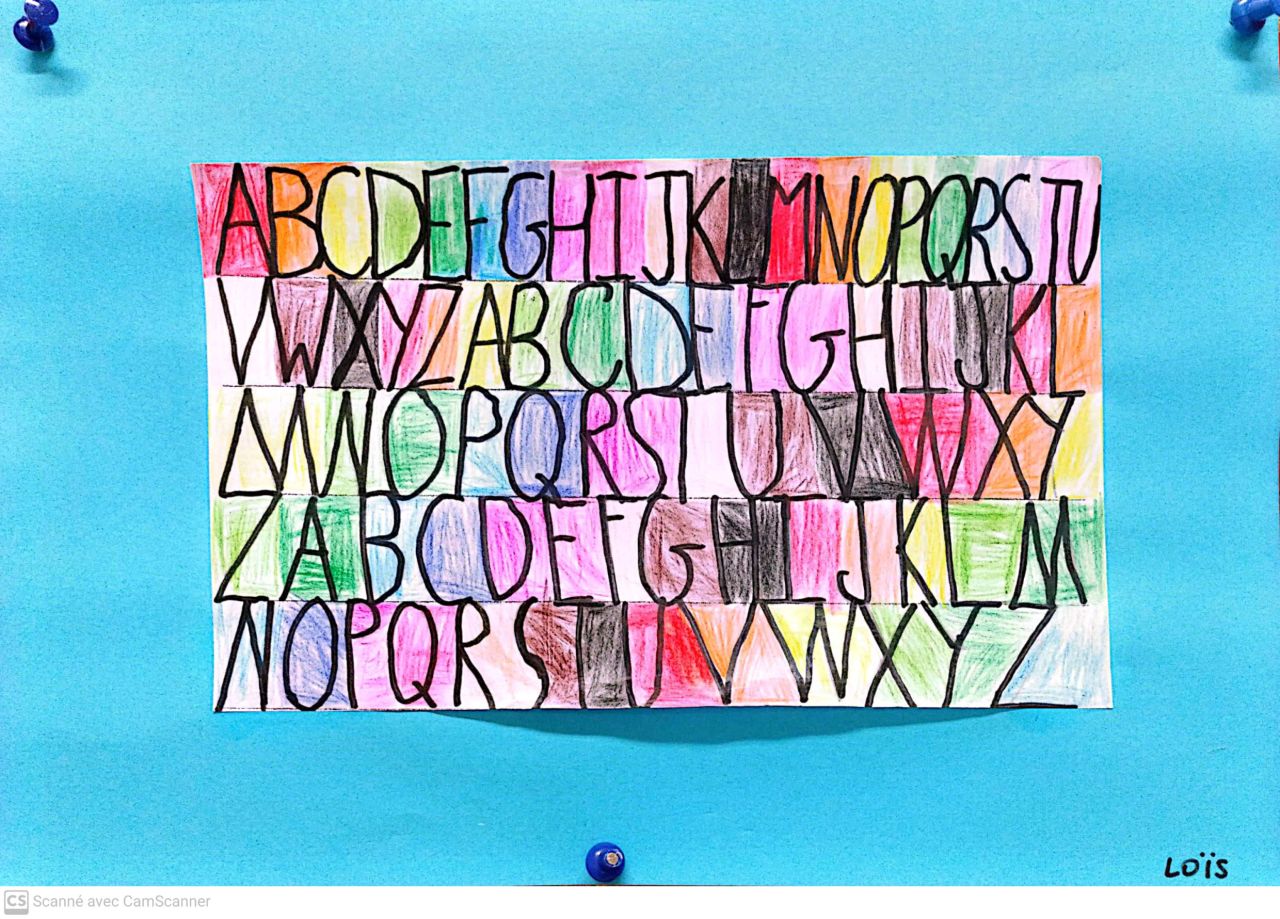 ABCDEFGHIJKLMNOPQRSTU
VWXYZABCDEFGHIJKL
MNOPQRSTUVWXY
ZABCDEFGHIJKLM
NOPQRSTUVWXYZ
LOÏS
CS Scanné avec CamScanner